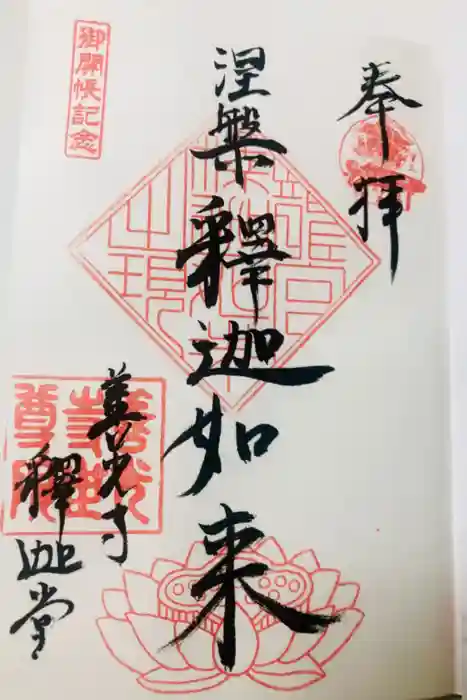 奉拝
涅槃釋迦如来
善光寺
釋迦堂
御開帳記念